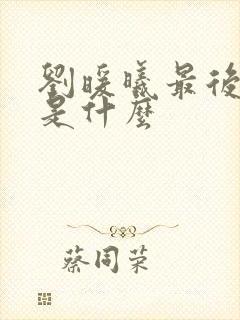 劉暖曦最後
是什麼
蔡同荣